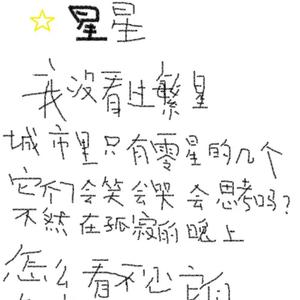 星星
我没看过繁星
城市里只有零星的几个
它们会笑会哭会思考吗?
不然在孤寂的晚上
怎么看不见它们